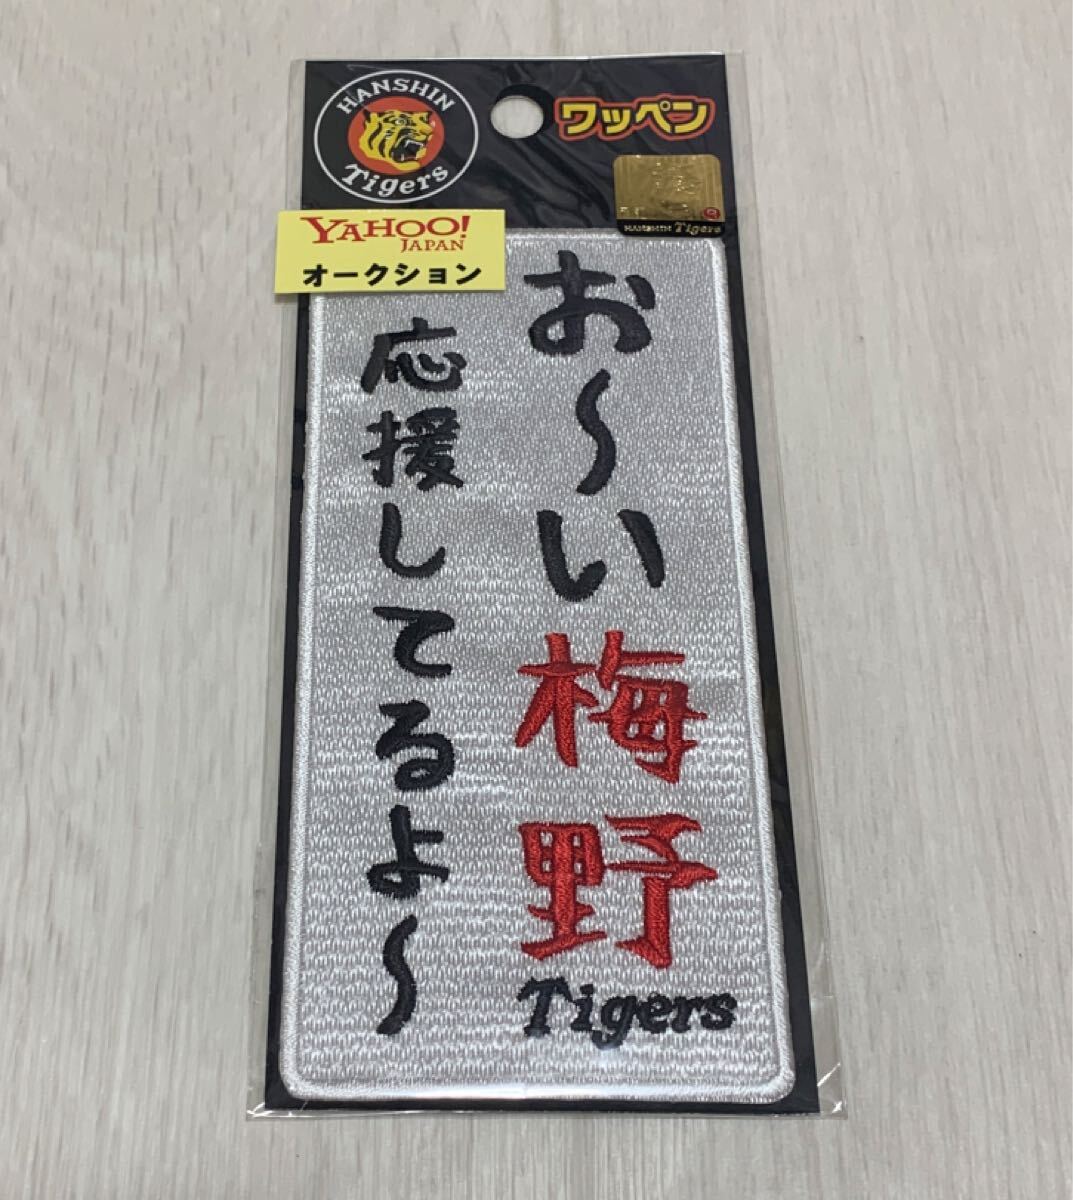 HANSHIN
Tigers
ワッペン
HANSHIN Tigers
YAHOO!
JAPAN
オークション
お〜い梅野
Tigers
応援してるよ〜